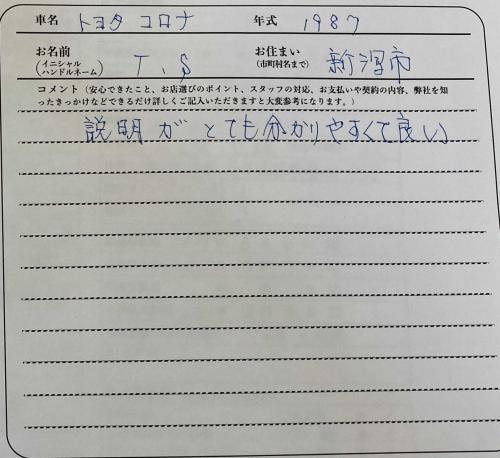 車名 トヨタ コロナ 年式 1987
お名前 (イニシャル ハンドルネーム) T.S お住まい (市町村名まで) 新潟市
コメント (安心できたこと、お店選びのポイント、スタッフの対応、お支払いや契約の内容、弊社を知
ったきっかけなどできるだけ詳しくご記入いただきますと大変参考になります。)
説明がとても分かりやすくて良い